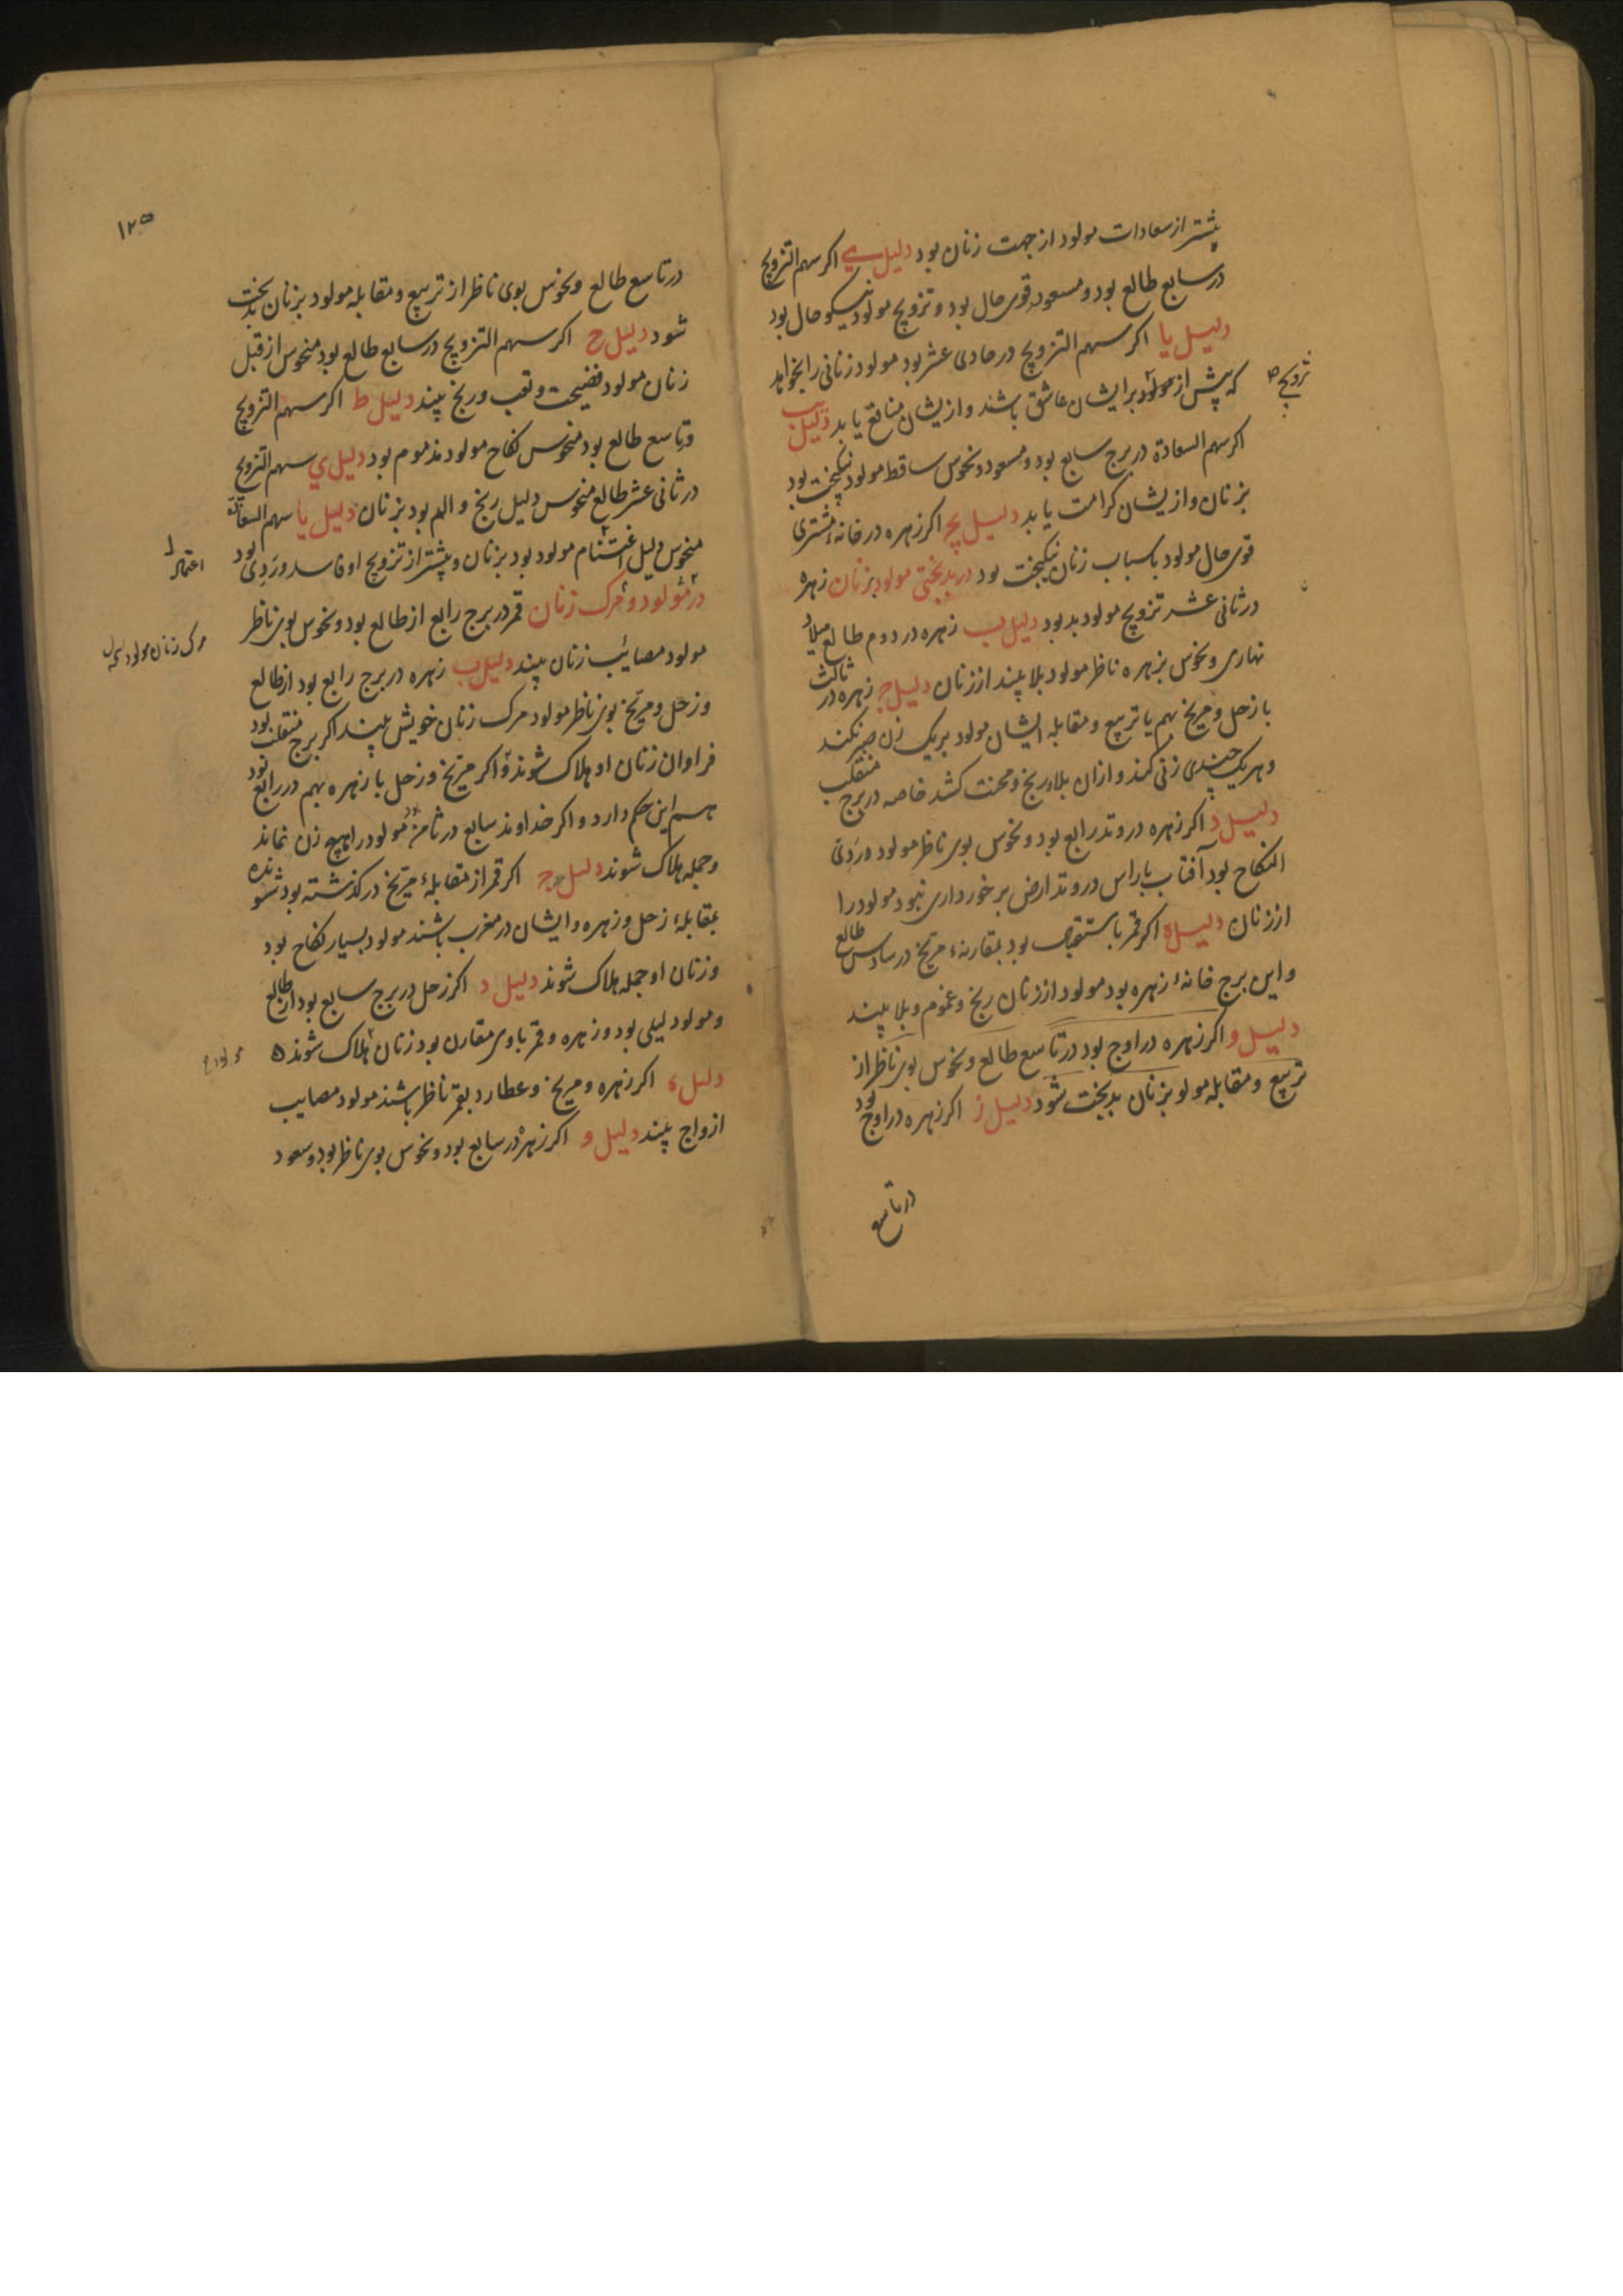 پیشتر از سعادات مولود از جهت زنان بود دلیل ی اکر سهم التزویج
در سابع طالع بود و مسعود قوی حال بود و تزویج مولود نیکو حال بود
دلیل یا اکر سهم التزویج در حادی عشر بود مولود زنانی را بخواهد
که پیش از مولود برایشان عاشق باشند و ازیشان منافع یابد دلیل یب
تزویج ص
اکر سهم السعادة در برج سابع بود و مسعود و نحوس ساقط مولود نیکبخت بود
بزنان و ازیشان کرامت یابد دلیل یج اکر زهره در خانهٔ مشتری
قوی حال مولود باسباب زنان نیکبخت بود در بدبختی مولود بزنان زهره
در ثانی عشر تزویج مولود بد بود دلیل ب زهره در دوم طالع میلاد
نهاری و نحوس بزهره ناظر مولود بلا بیند از زنان دلیل ج زهره در ثالث
با زحل و مریخ بهم یا تربیع و مقابله ایشان مولود بر یک زن صبر نکند
و هر یک چندی زنی کند و ازان بلا و رنج و محنت کشد خاصه در برج منقلب
دلیل د اکر زهره در وتد رابع بود و نحوس بوی ناظر مولود وردی
النکاح بود آفتاب با راس در وتد ارض برخورداری نبود مولود را
از زنان دلیل ه اکر قمر باستقبال بود بمقارنهٔ مریخ در سادس طالع
و این برج خانهٔ زهره بود مولود از زنان رنج و غموم و بلا بیند
دلیل و اکر زهره در اوج بود در تاسع طالع و نحوس بوی ناظر از
تربیع و مقابله مولو بزنان بدبخت شود دلیل ز اکر زهره در اوج بود
در تاسع
۱۲۵
در تاسع طالع و نحوس بوی ناظر از تربیع و مقابله مولود بزنان بدبخت
شود دلیل ح اکر سهم التزویج در سابع طالع بود منحوس از قبل
زنان مولود فضیحت و تعب و رنج بیند دلیل ط اکر سهم التزویج
و تاسع طالع بود منحوس نکاح مولود مذموم بود دلیل ي سهم التزویج
در ثانی عشر طالع منحوس دلیل رنج و الم بود بزنان دلیل یا سهم السعادة
منحوس دلیل اغتنام مولود بود بزنان و پیشتر از تزویج او فاسد و ردی بود
در مولود و مرک زنان قمر در برج رابع از طالع بود و نحوس بوی ناظر
مولود مصائب زنان بیند دلیل ب زهره در برج رابع بود از طالع
مرک زنان مولود
و زحل و مریخ بوی ناظر مولود مرک زنان خویش بیند اکر برج منقلب بود
فراوان زنان او هلاک شوند و اکر مریخ و زحل با زهره بهم در رابع بود
هم این حکم دارد و اکر خداوند سابع در ثامن بود مولود را هیچ زن نماند
و جمله هلاک شوند دلیل ج اکر قمر از مقابلهٔ مریخ در کذشته بود شونده
بمقابلهٔ زحل و زهره و ایشان در مغرب باشند مولود بسیار نکاح بود
و زنان او جمله هلاک شوند دلیل د اکر زحل در برج سابع بود از طالع
و مولود لیلی بود و زهره و قمر باوی مقارن بود زنان هلاک شوند ه
دلیل ه اکر زهره و مریخ و عطارد بقمر ناظر باشند مولود مصایب
ازواج بیند دلیل و اکر زهره در سابع بود و نحوس بوی ناظر بود و سعود